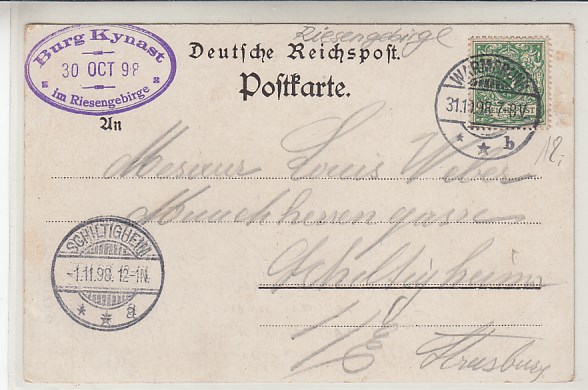 Burg Kynast
30 OCT 98
im Riesengebirge
Riesengebirge
Deutsche Reichspost.
Postkarte.
An
31.10.98. 7-8V.
* * b
12,
Louis Weber
Schiltigheim
i/E Strasburg
SCHILTIGHEIM
-1.11.98. 12-1N.
* * a